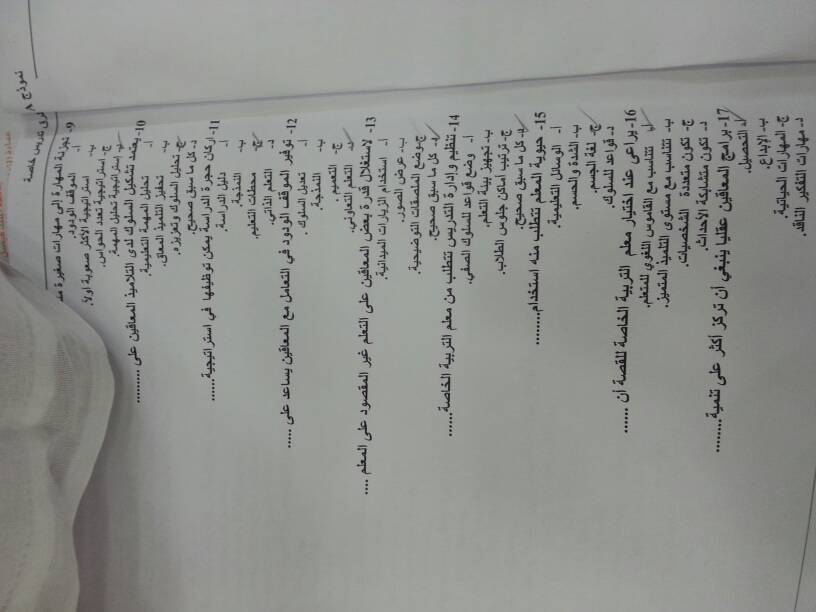 نموذج ٨
طرق تدريس خاصة
9- تجزئة المهارة إلى مهارات صغيرة
أ. الموقف الودود.
ب. استراتيجية الأكثر صعوبة أولا.
ج. استراتيجية تعدد الحواس.
استراتيجية تحليل المهمة.
10- يعتمد تشكيل السلوك لدى التلاميذ المعاقين على .........
أ. تحليل المهمة التعليمية.
ب. تحفيز التلميذ المعاق.
ج. تحليل السلوك وتعزيزه.
د. كل ما سبق صحيح.
11- اركان حجرة الدراسة يمكن توظيفها في استراتيجية......
أ. دليل الدراسة.
ب. النمذجة.
ج. محطات التعليم.
د. التعلم الذاتي.
12- توفير الموقف الودود في التعامل مع المعاقين يساعد على ......
أ. تعديل السلوك.
ب. النمذجة.
ج. التعميم.
د. التعلم التعاوني.
13- لاستغلال قدرة بعض المعاقين على التعلم غير المقصود على المعلم ....
أ. استخدام الزيارات الميدانية.
ب. عرض الصور.
ج. وضع الملصقات التوضيحية.
د. كل ما سبق صحيح.
14- تنظيم وإدارة التدريس تتطلب من معلم التربية الخاصة......
أ. وضع قواعد للسلوك الصفي.
ب. تجهيز بيئة التعلم.
ج. ترتيب اماكن جلوس الطلاب.
د. كل ما سبق صحيح.
15- حيوية المعلم تتطلب منه استخدام........
أ. الوسائل التعليمية.
ب. الشدة والحسم.
ج. لغة الجسم.
د. قواعد للسلوك.
16- يراعى عند اختيار معلم التربية الخاصة للقصة أن ......
أ. تتناسب مع القاموس اللغوي للمتعلم.
ب. تتناسب مع مستوى التلميذ المتميز.
ج. تكون متعددة الشخصيات.
د. تكون متشابكة الأحداث.
17- برامج المعاقين عقليا ينبغي أن تركز اكثر على تنمية........
أ. التحصيل.
ب. الإبداع.
ج. المهارات الحياتية.
د. مهارات التفكير الناقد.